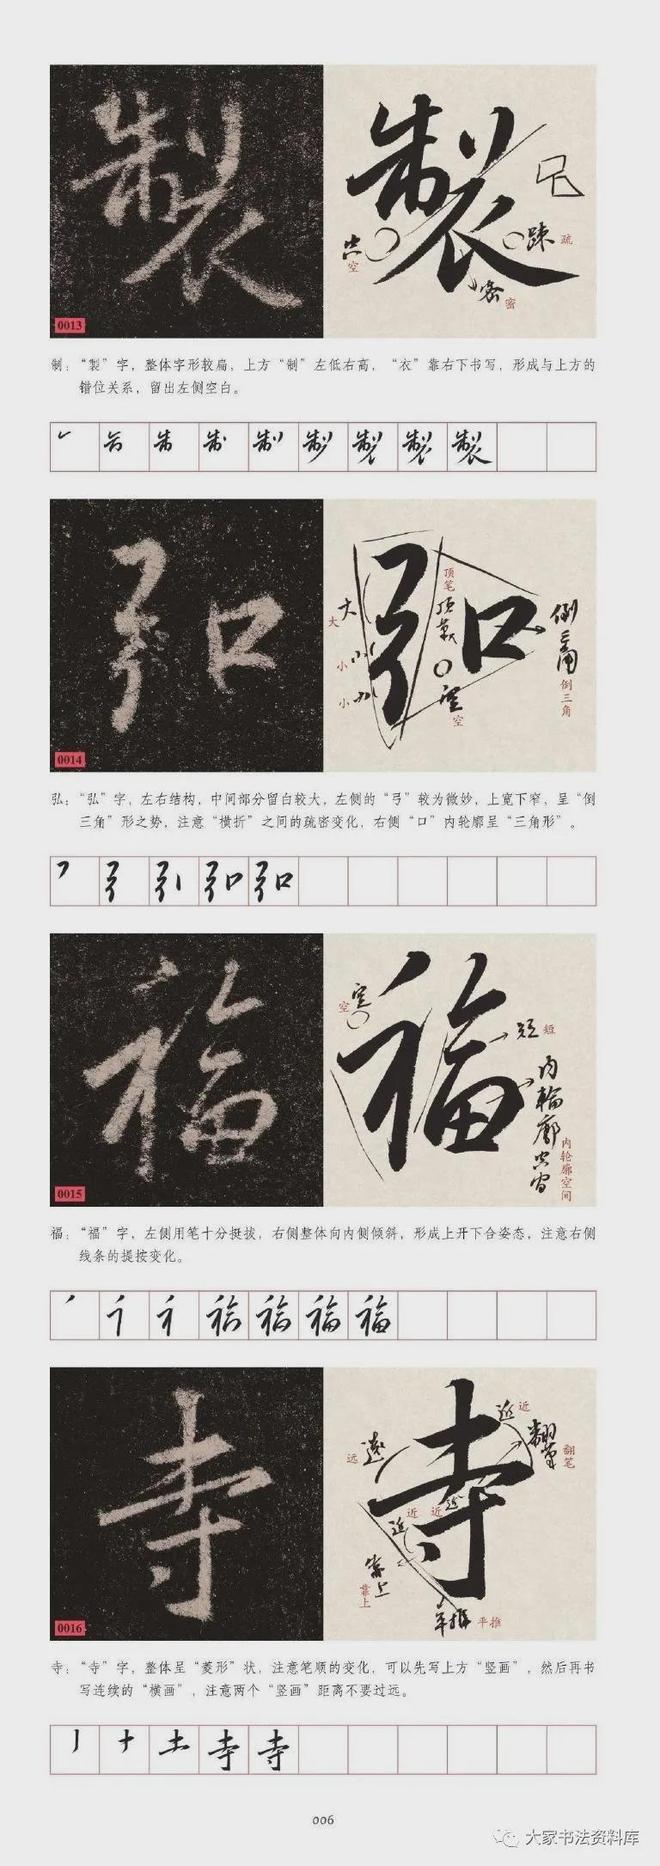 製
製
空
疏
密
0013
制：“製”字，整体字形较扁，上方“制”左低右高，“衣”靠右下书写，形成与上方的
错位关系，留出左侧空白。
製
弘
弘
顶笔
大
小
小
空
倒三角
0014
弘：“弘”字，左右结构，中间部分留白较大，左侧的“弓”较为微妙，上宽下窄，呈“倒
三角”形之势，注意“横折”之间的疏密变化，右侧“口”内轮廓呈“三角形”。
弘
福
福
空
短
内轮廓空间
0015
福：“福”字，左侧用笔十分挺拔，右侧整体向内侧倾斜，形成上开下合姿态，注意右侧
线条的提按变化。
福
寺
寺
近
远
翻笔
近
近
靠上
平推
0016
寺：“寺”字，整体呈“菱形”状，注意笔顺的变化，可以先写上方“竖画”，然后再书
写连续的“横画”，注意两个“竖画”距离不要过远。
十 土 寺 寺
006
大家书法资料库